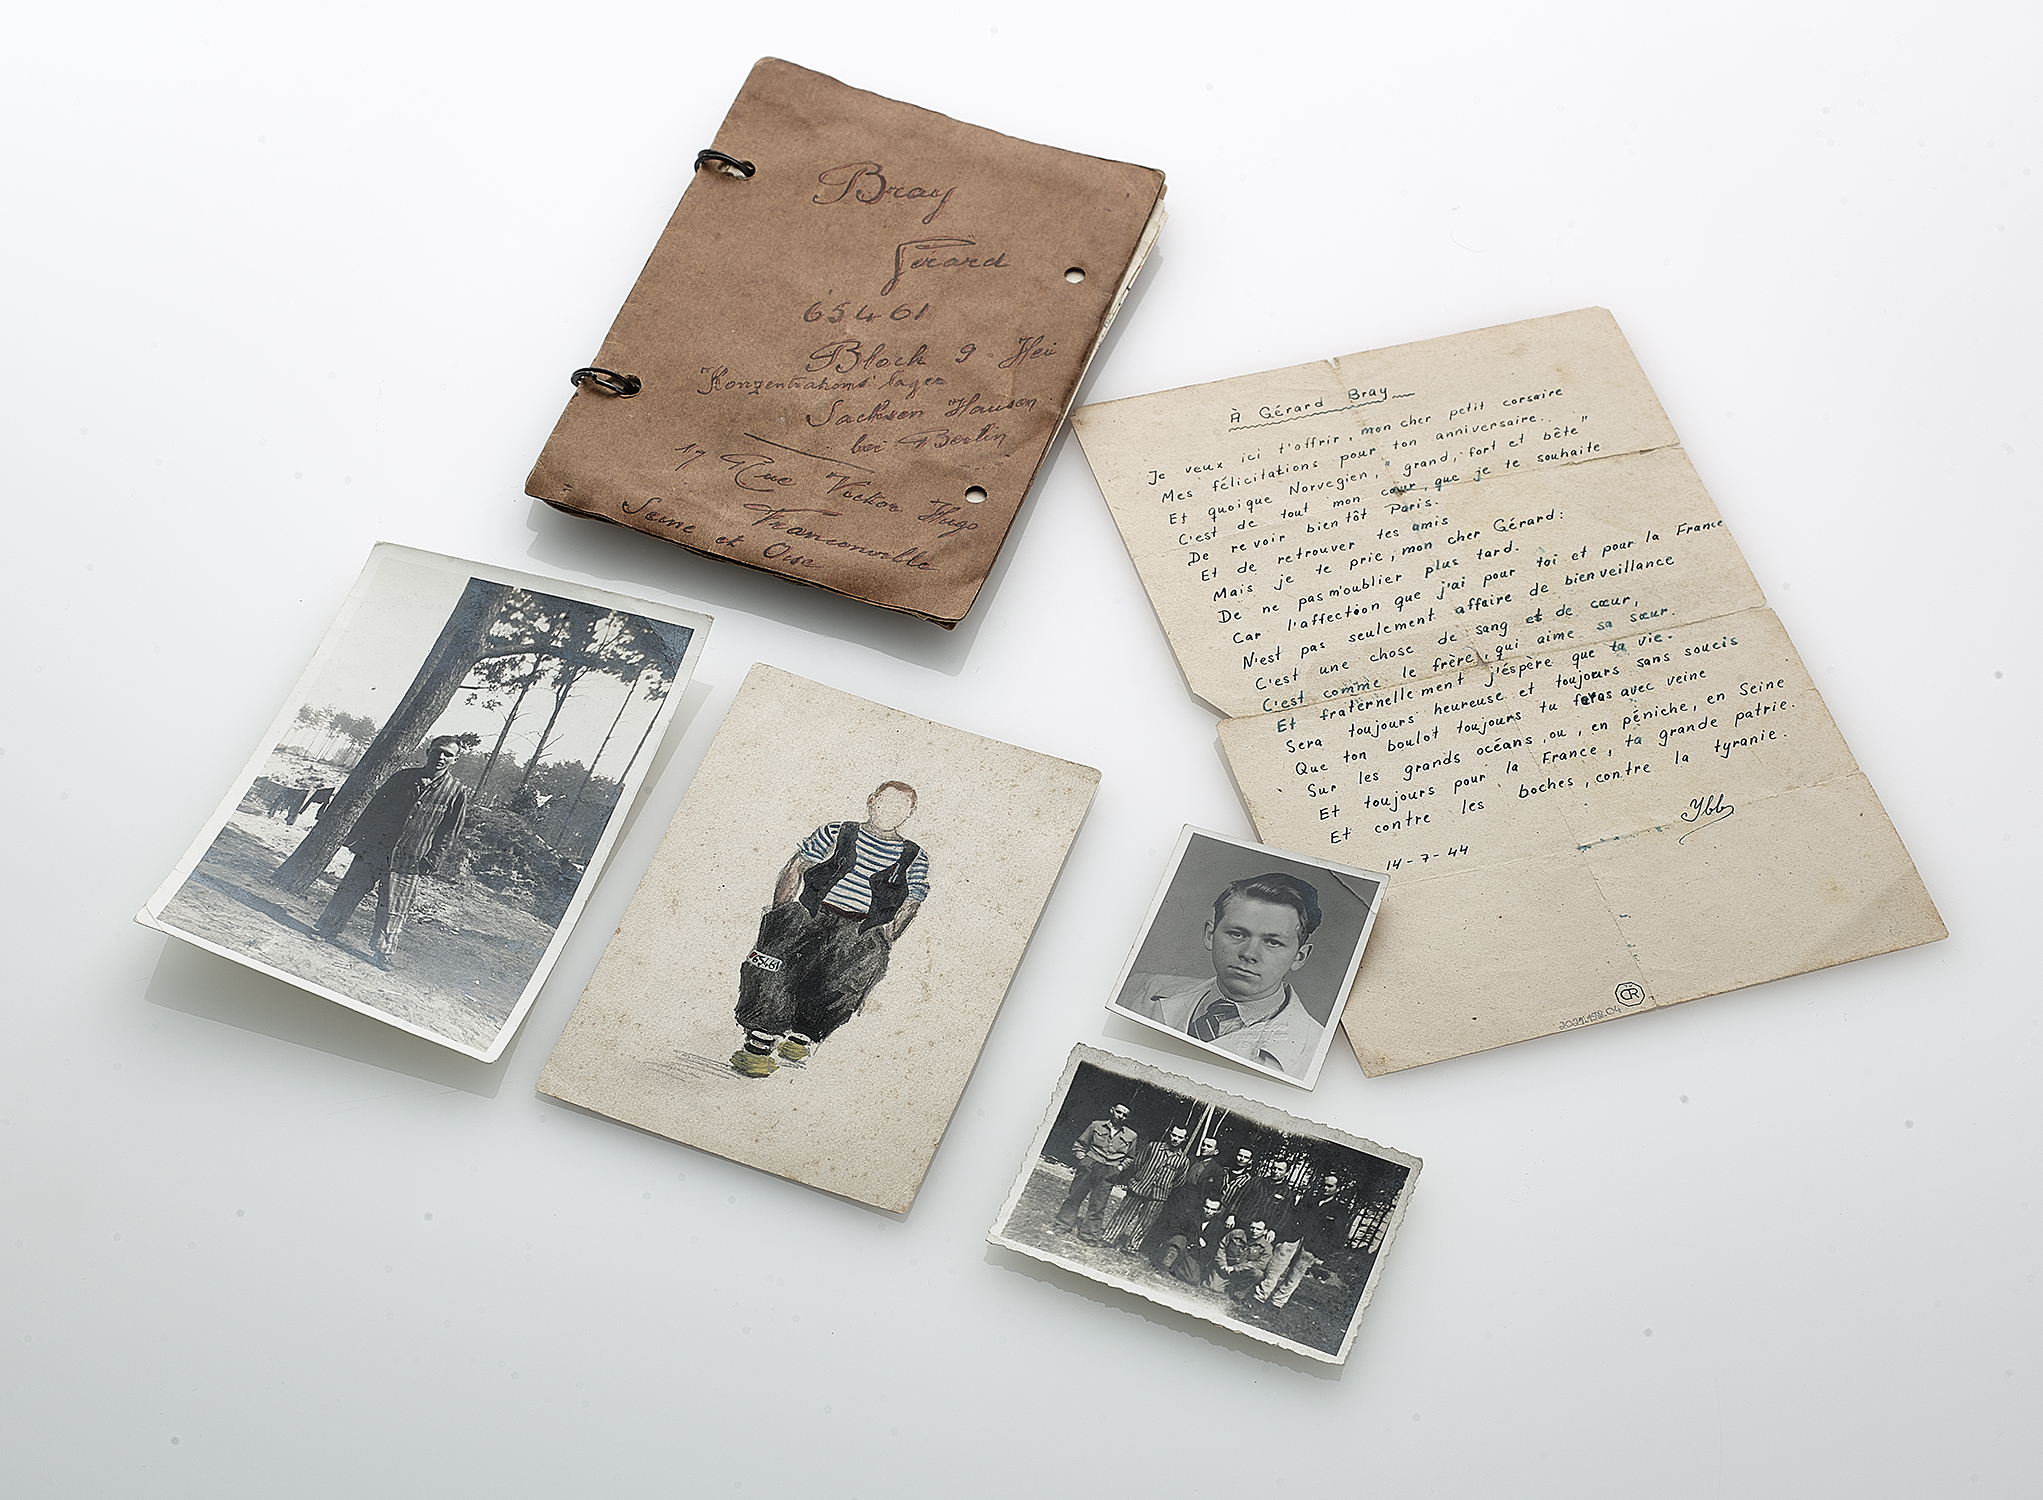 Bray
Gérard
65461
Block 9 Hei
Konzentrations lager
Sachsen Hausen
bei Berlin
17 Rue Victor Hugo
Franconville
Seine et Oise
À Gérard Bray
Je veux ici t'offrir, mon cher petit corsaire
Mes félicitations pour ton anniversaire.
Et quoique Norvegien, "grand, fort et bête"
C'est de tout mon cœur, que je te souhaite
De revoir bientôt Paris.
Et de retrouver tes amis
Mais je te prie, mon cher Gérard:
De ne pas m'oublier plus tard.
Car l'affection que j'ai pour toi et pour la France
N'est pas seulement affaire de bienveillance
C'est une chose de sang et de cœur,
C'est comme le frère, qui aime sa sœur.
Et fraternellement j'éspère que ta vie.
Sera toujours heureuse et toujours sans soucis
Que ton boulot toujours tu feras avec veine
Sur les grands océans, ou, en péniche, en Seine
Et toujours pour la France, ta grande patrie.
Et contre les boches, contre la tyranie.
Ybb
14-7-44
ČR
2021.158.04
65461